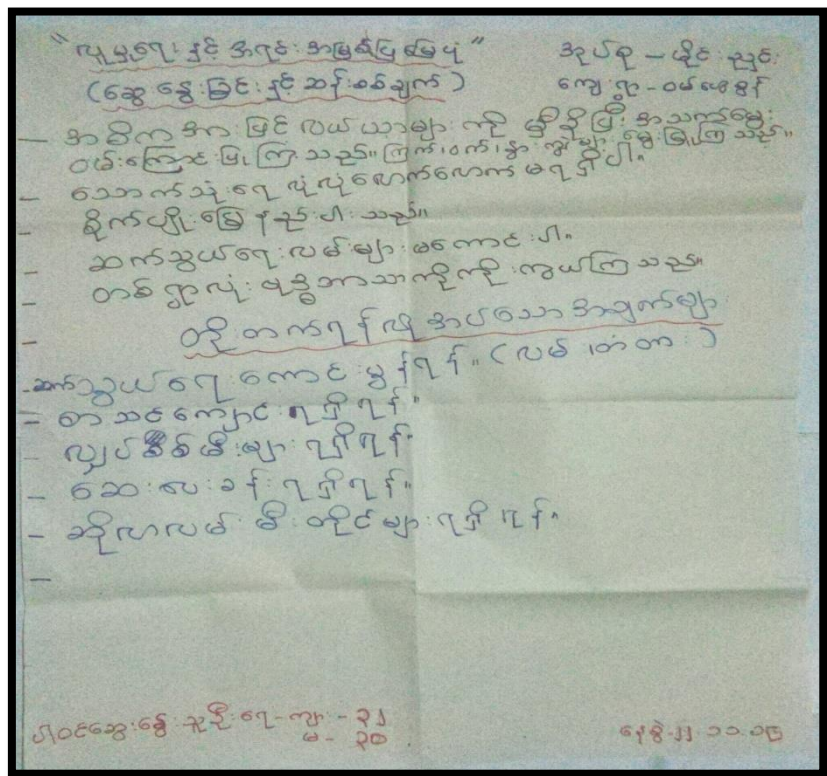 "လူမှုရေး နှင့် အရင်းအမြစ်ပြမြေပုံ"
(ဆွေးနွေးခြင်း နှင့် ဆန်းစစ်ချက်)
အုပ်စု – ပိုင်းညှင်း
ကျေးရွာ –
– အဓိကအားဖြင့် လယ်ယာများ ကို မှီခိုပြီး အသက်မွေး
ဝမ်းကြောင်းပြုကြသည်။ ကြက်၊ဝက်၊နွား ကျွဲများ မွေးမြူကြသည်။
– သောက်သုံးရေ လုံလုံလောက်လောက် မရရှိပါ။
– စိုက်ပျိုးမြေ နည်းပါးသည်။
– ဆက်သွယ်ရေးလမ်းများ မကောင်းပါ။
– တစ်ရွာလုံး ဗုဒ္ဓဘာသာကိုးကွယ်ကြသည်။
တိုးတက်ရန်လိုအပ်သောအချက်များ
- ဆက်သွယ်ရေးကောင်းမွန်ရန်။ (လမ်း၊တံတား)
– စာသင်ကျောင်းရရှိရန်။
– လျှပ်စစ်မီးများရရှိရန်။
– ဆေးပေးခန်းရရှိရန်။
– ဆိုလာလမ်းမီးတိုင်များရရှိရန်။
–
ပါဝင်ဆွေးနွေးသူဦးရေ – ကျား – ၃၂
မ – ၃၀
နေ့စွဲ